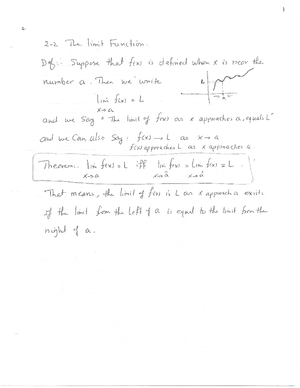 1
2.
2-2 The limit Function.
Def:- Suppose that f(x) is defined when x is near the
number a. Then we write
lim f(x) = L
x→a
and we say "the limit of f(x) as x approaches a, equals L"
and we can also say: f(x) → L as x → a
f(x) approaches L as x approaches a.
Theorem: lim f(x) = L iff lim f(x) = lim f(x) = L.
x→a x→a x→a
That means, the limit of f(x) is L as x approach a exists
if the limit from the left of a is equal to the limit from the
right of a.